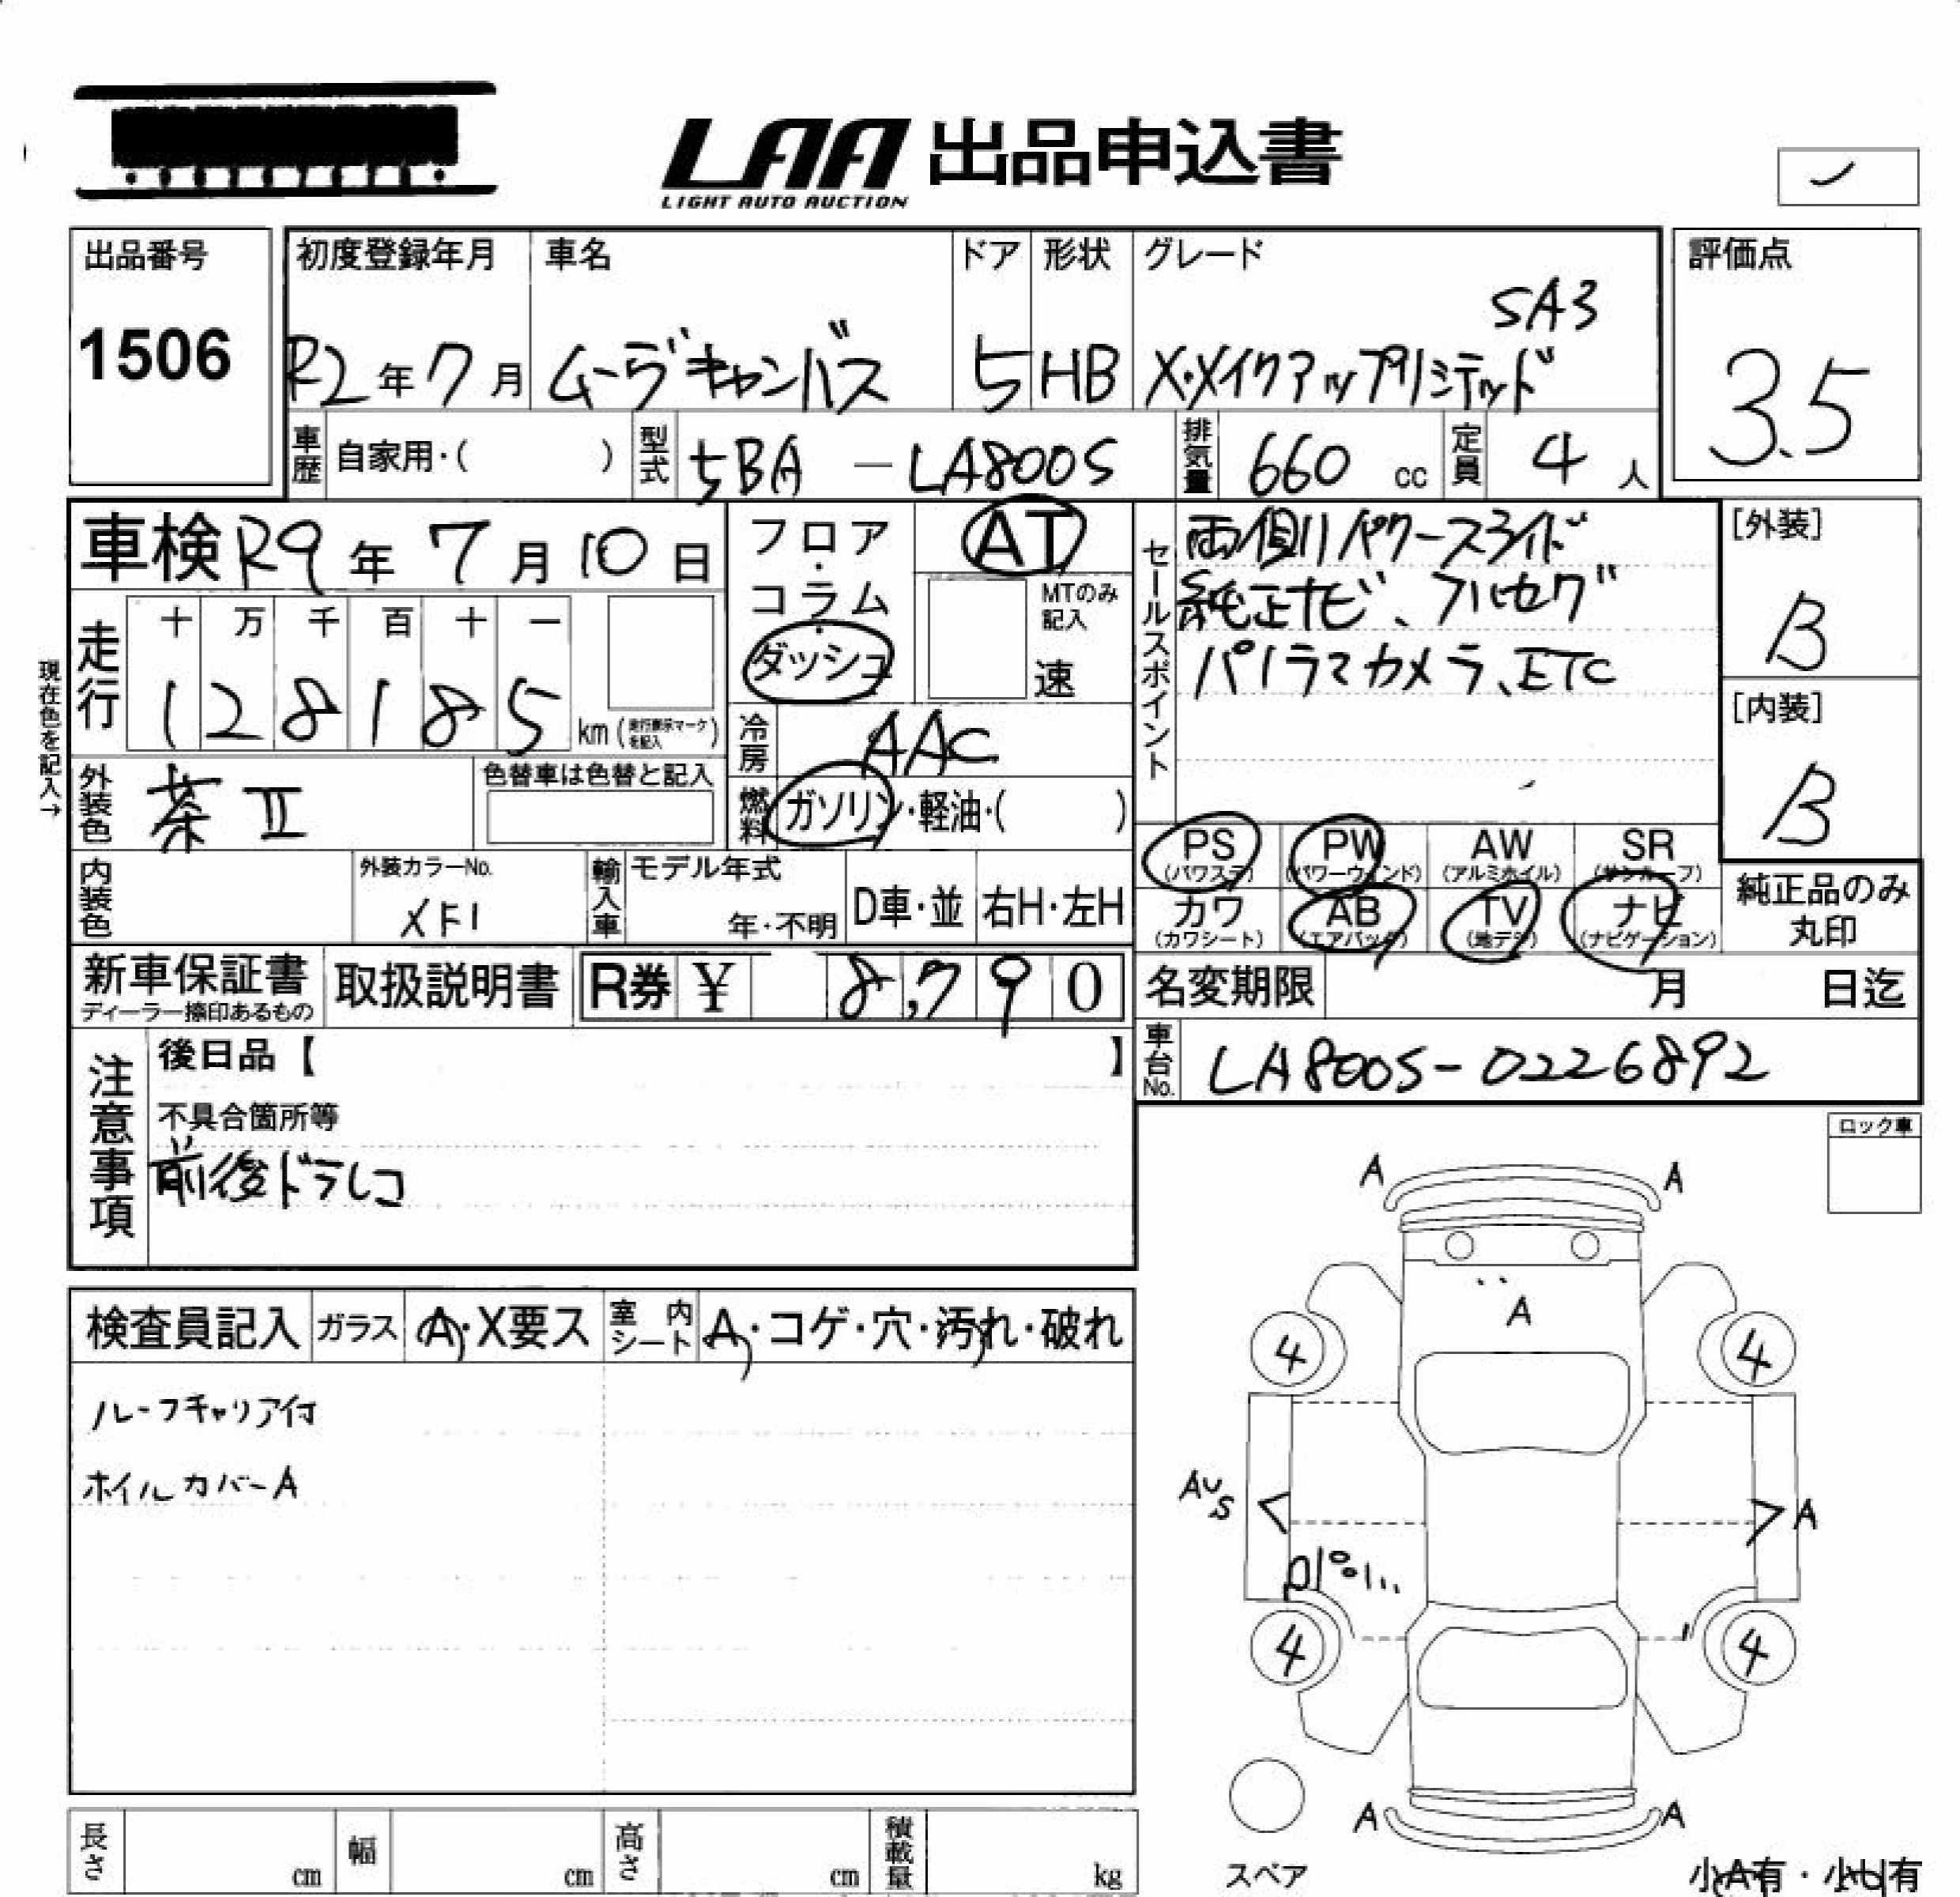 LAA 出品申込書
LIGHT AUTO AUCTION
出品番号
1506
初度登録年月
R2年7月
車名
ムーヴキャンバス
ドア
5
形状
HB
グレード
SA3
X・メイクアップリミテッド
評価点
3.5
車歴 自家用・( )
型式 5BA-LA800S
排気量 660 cc
定員 4 人
車検 R9年7月10日
フロア・コラム・ダッシュ
AT
MTのみ記入
速
セールスポイント
両側パワースライド
純正ナビ、フルセグ
パノラマカメラ、ETC
[外装]
B
[内装]
B
現在色を記入→
走行
十 万 千 百 十 一
1 2 8 1 8 5 km (走行表示マークを記入)
冷房 AAC
外装色 茶II
色替車は色替と記入
燃料 ガソリン・軽油・( )
PS (パワステ)
PW (パワーウィンド)
AW (アルミホイル)
SR (サンルーフ)
カワ (カワシート)
AB (エアバッグ)
TV (地デジ)
ナビ (ナビゲーション)
純正品のみ丸印
内装色
外装カラーNo.
XF1
輸入車
モデル年式
年・不明
D車・並
右H・左H
新車保証書
ディーラー捺印あるもの
取扱説明書
R券 ¥ 8,790
名変期限 月 日迄
車台No. LA800S-0226892
注意事項
後日品【 】
不具合箇所等
前後ドラレコ
ロック車
検査員記入
ガラス A・X要ス
室内シート A・コゲ・穴・汚れ・破れ
ルーフキャリア付
ホイルカバーA
A A
A
4 4
AUS A
4 4
A A
スペア
小A有・小U有
長さ cm
幅 cm
高さ cm
積載量 kg